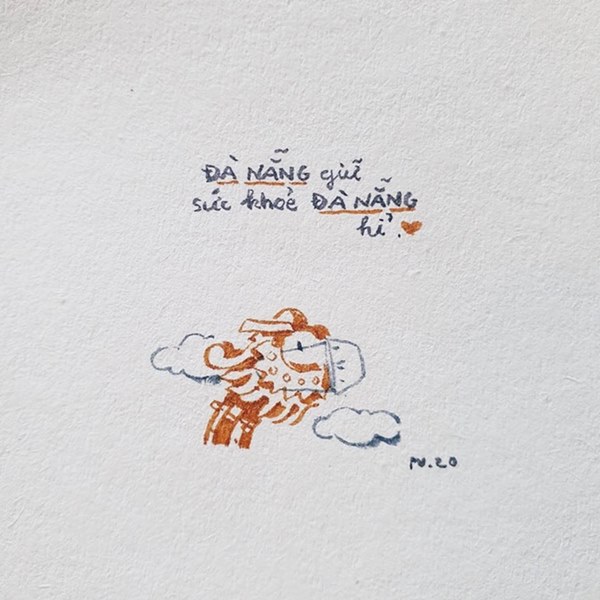 ĐÀ NẴNG giữ
sức khoẻ ĐÀ NẴNG
hỉ.
N.20